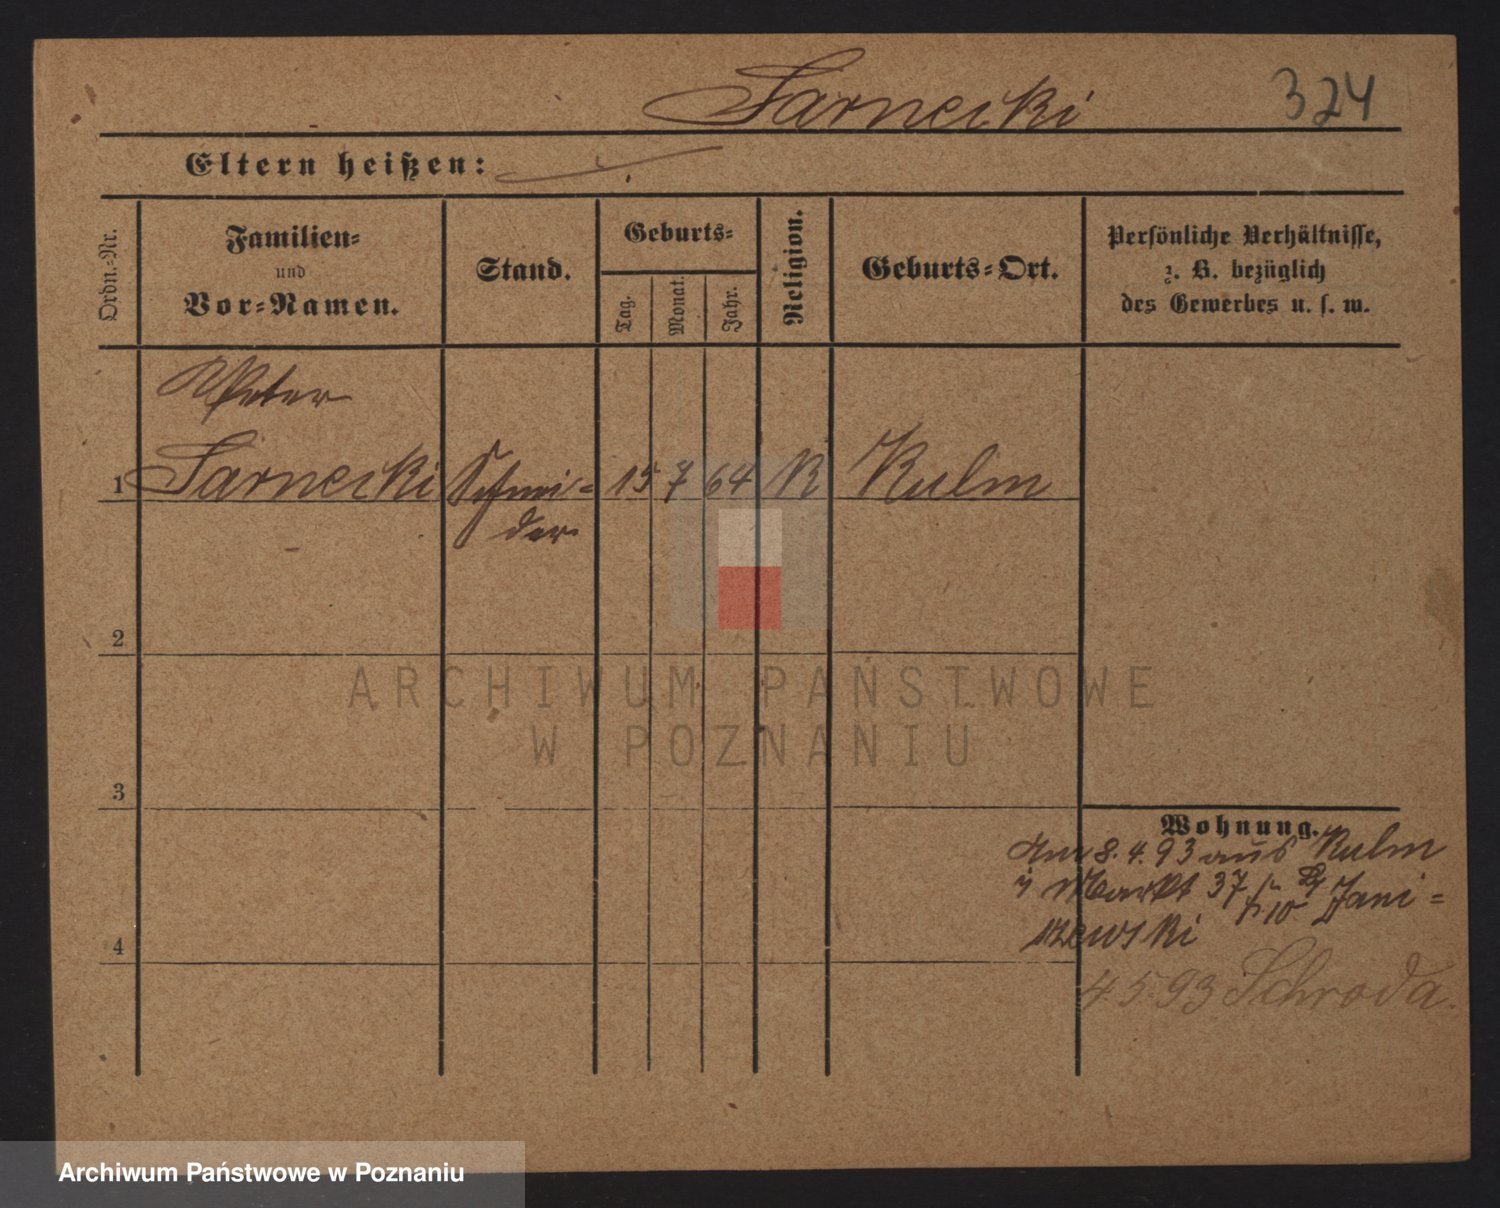 Sarnecki
324
Eltern heißen:
Ordn.-Nr.
Familien-
und
Vor-Namen.
Stand.
Geburts-
Tag.
Monat.
Jahr.
Religion.
Geburts-Ort.
Persönliche Verhältnisse,
z. B. bezüglich
des Gewerbes u. s. w.
Peter
1 Sarnecki Schnei- 15 7 64 K Kulm
der
2
3
4
Wohnung.
Am 8. 4. 93 aus Kulm
Markt 37 Jani-
szewski
4 5 93 Schroda.
ARCHIWUM PAŃSTWOWE
W POZNANIU
Archiwum Państwowe w Poznaniu